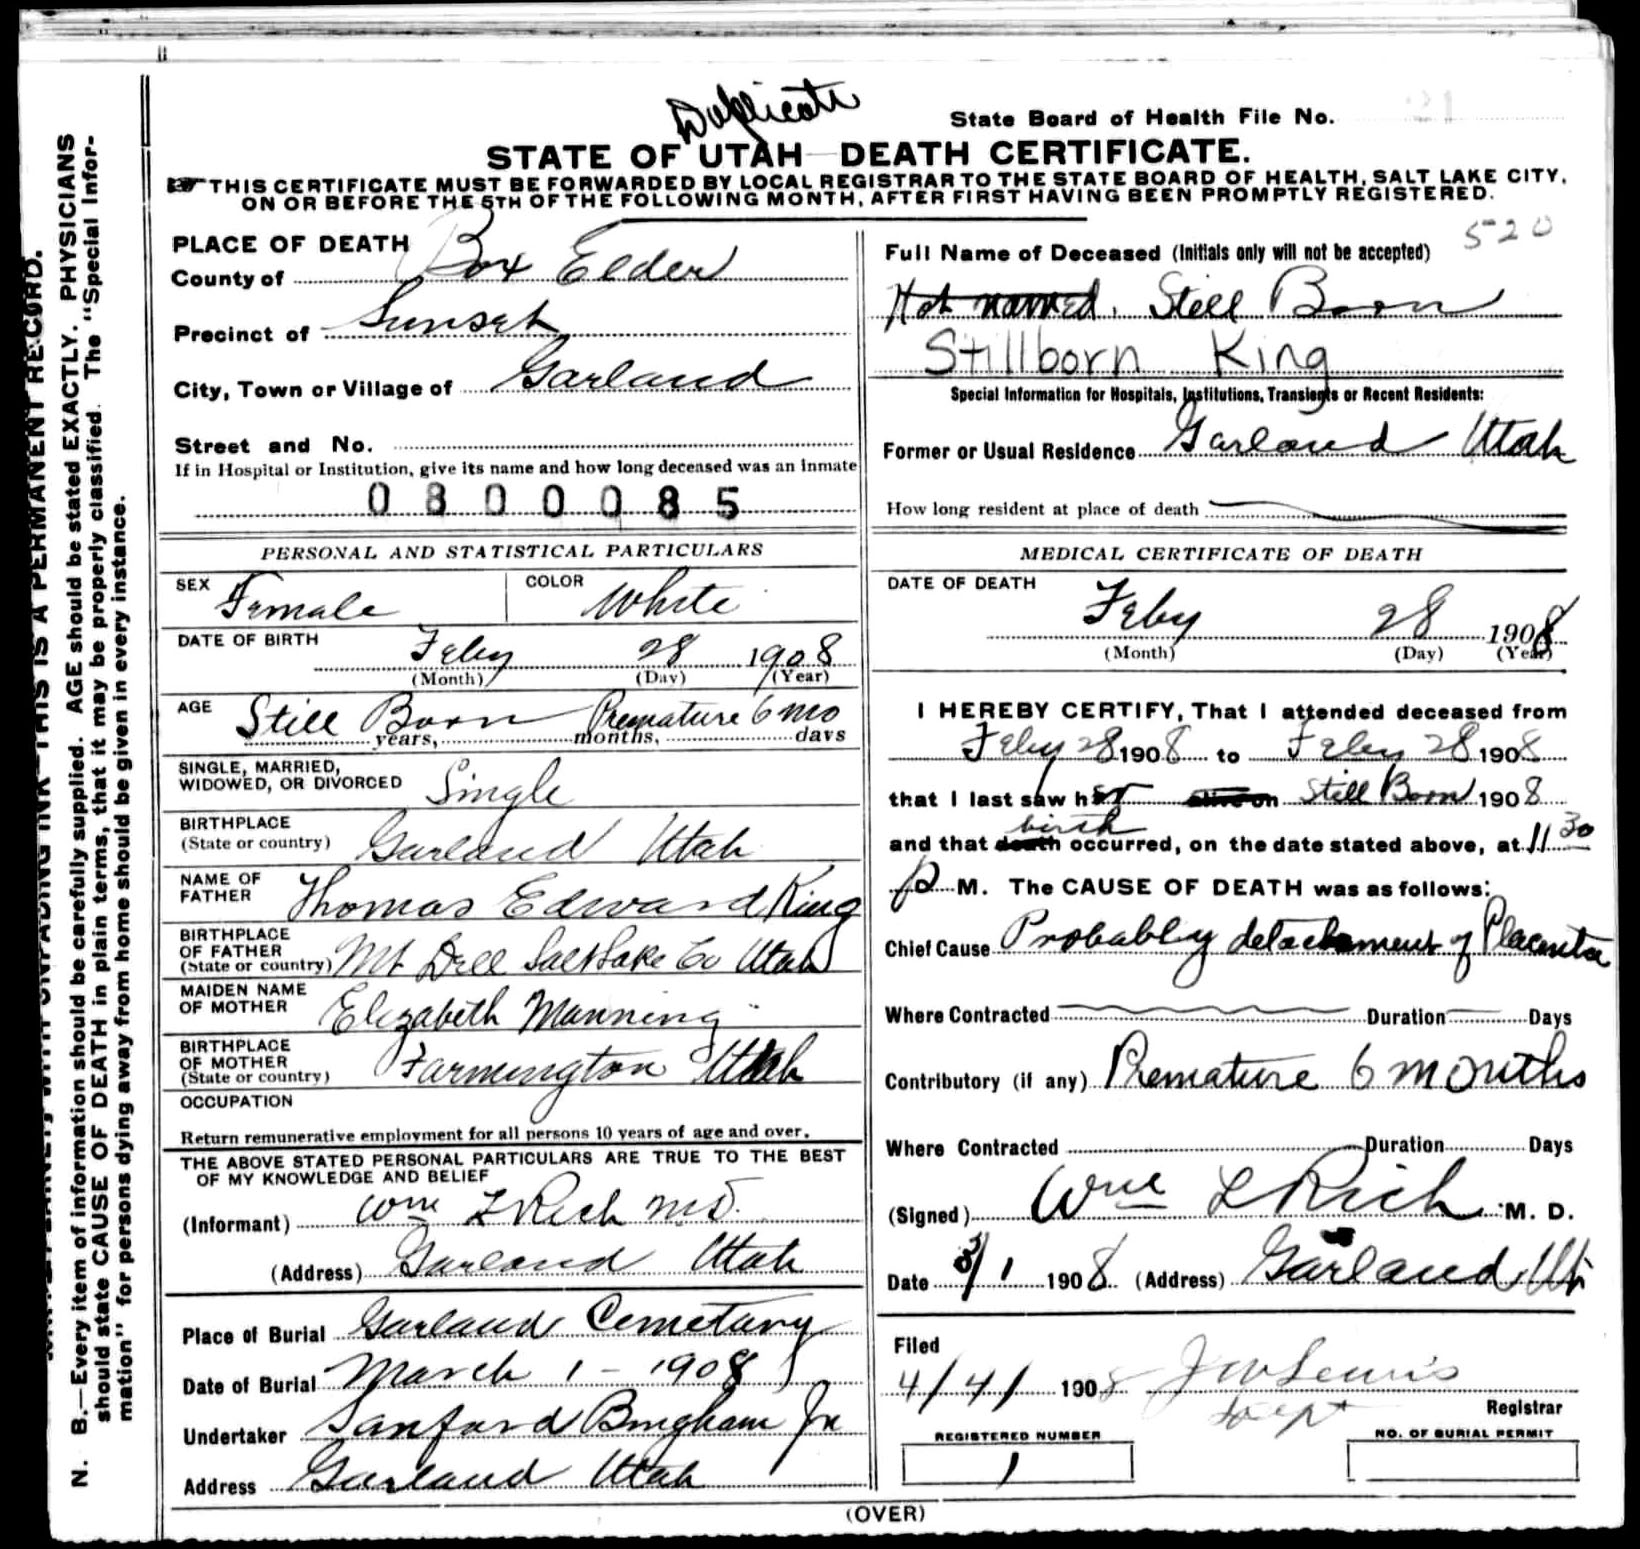 Duplicate
State Board of Health File No. 21
STATE OF UTAH DEATH CERTIFICATE.
THIS CERTIFICATE MUST BE FORWARDED BY LOCAL REGISTRAR TO THE STATE BOARD OF HEALTH, SALT LAKE CITY,
ON OR BEFORE THE 5TH OF THE FOLLOWING MONTH, AFTER FIRST HAVING BEEN PROMPTLY REGISTERED.
N. B.—Every item of information should be carefully supplied. AGE should be stated EXACTLY. PHYSICIANS
should state CAUSE OF DEATH in plain terms, that it may be properly classified. The "Special Infor-
mation" for persons dying away from home should be given in every instance.
THIS IS A PERMANENT RECORD.
PLACE OF DEATH
County of Box Elder
Precinct of Sunset
City, Town or Village of Garland
Street and No.
If in Hospital or Institution, give its name and how long deceased was an inmate
0800085
520
Full Name of Deceased (Initials only will not be accepted)
Not named. Still Born
Stillborn King
Special Information for Hospitals, Institutions, Transients or Recent Residents:
Former or Usual Residence Garland Utah
How long resident at place of death
PERSONAL AND STATISTICAL PARTICULARS
SEX Female COLOR White
DATE OF BIRTH
Feby 28 1908
(Month) (Day) (Year)
AGE Still Born Premature 6 mo
years, months, days
SINGLE, MARRIED,
WIDOWED, OR DIVORCED Single
BIRTHPLACE
(State or country) Garland Utah
NAME OF
FATHER Thomas Edward King
BIRTHPLACE
OF FATHER
(State or country) Mt Dell Salt Lake Co Utah
MAIDEN NAME
OF MOTHER Elizabeth Manning
BIRTHPLACE
OF MOTHER
(State or country) Farmington Utah
OCCUPATION
Return remunerative employment for all persons 10 years of age and over.
THE ABOVE STATED PERSONAL PARTICULARS ARE TRUE TO THE BEST
OF MY KNOWLEDGE AND BELIEF
(Informant) Wm L Rich M.D.
(Address) Garland Utah
Place of Burial Garland Cemetary
Date of Burial March 1 - 1908
Undertaker Sanford Bingham Jr
Address Garland Utah
MEDICAL CERTIFICATE OF DEATH
DATE OF DEATH
Feby 28 1908
(Month) (Day) (Year)
I HEREBY CERTIFY, That I attended deceased from
Feby 28 1908 to Feby 28 1908
that I last saw her alive on Still Born 1908
birth
and that death occurred, on the date stated above, at 11 30
P M. The CAUSE OF DEATH was as follows:
Chief Cause Probably detachment of Placenta
Where Contracted Duration Days
Contributory (if any) Premature 6 months
Where Contracted Duration Days
(Signed) Wm L Rich M. D.
Date 3/1 1908 (Address) Garland, Ut
Filed
4/4/ 1908 J W Lewis
Dept Registrar
REGISTERED NUMBER
1
NO. OF BURIAL PERMIT
(OVER)